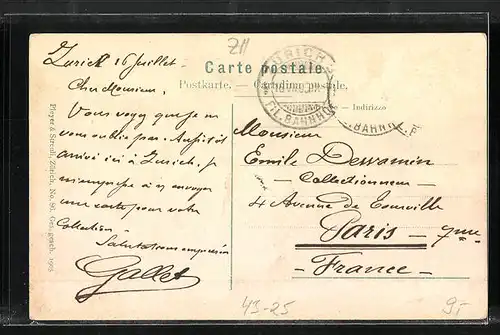 ZII
Carte postale
Postkarte. — Cartolina postale.
Indirizzo
ZÜRICH
FIL. BAHNHOF
Zurich 16 Juillet-
Cher Monsieur,
Vous voyez que je ne
vous oublie pas. Aussitôt
arrivé ici à Zurich, je
m'empresse à vous envoyer
une carte pour votre
Collection.
Salutations empressées
Gallet
Monsieur
Emile
- Collectionneur -
4 Avenue de
Paris -
- France -
43-25
9,-
Pleyer & Streuli, Zürich. No. 80. Ges. gesch. 1905